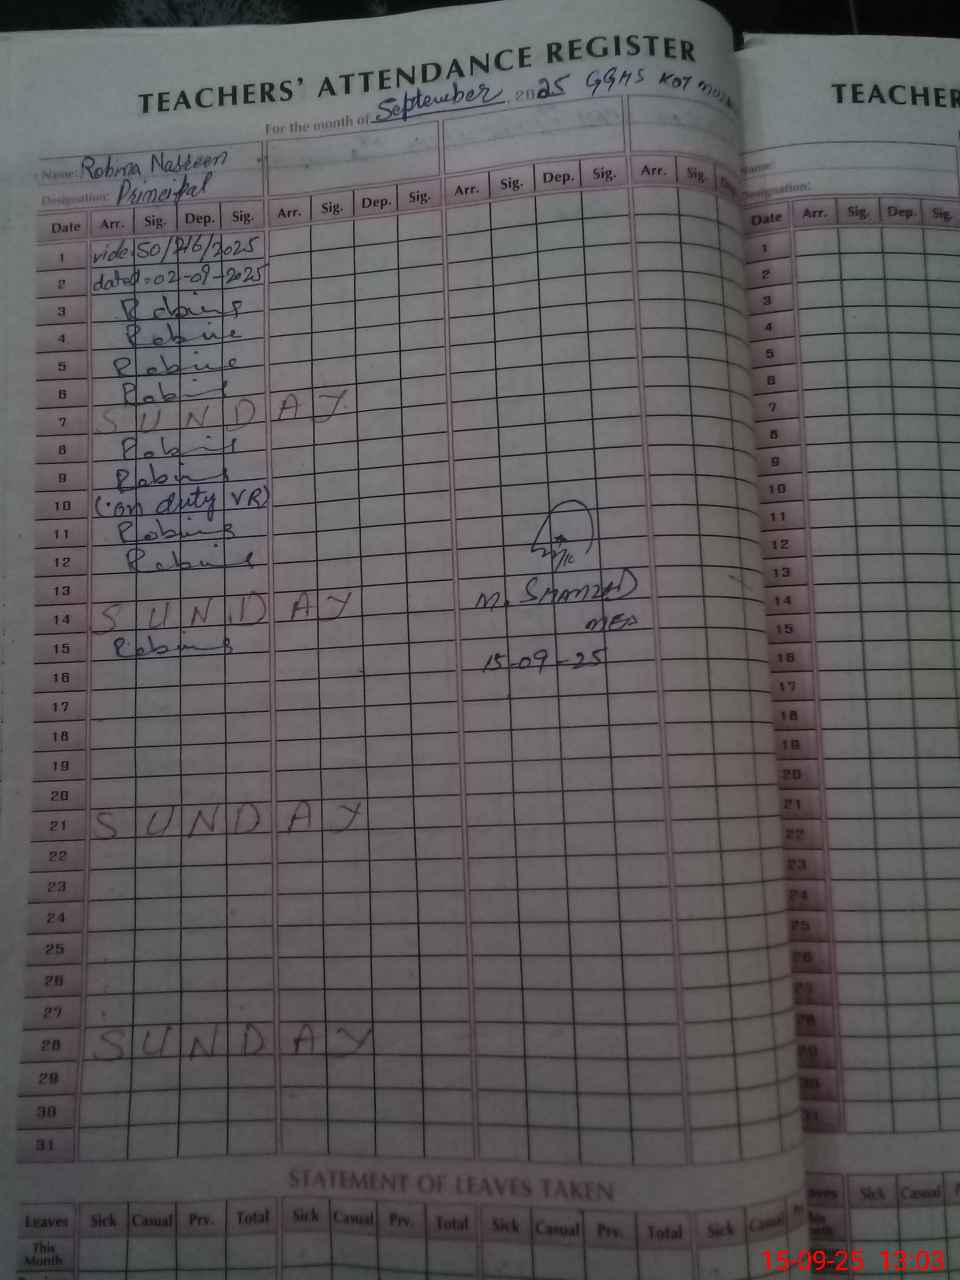 TEACHERS' ATTENDANCE REGISTER
For the month of September, 2025 GGHS KOT
Name: Robina Nasreen
Designation: Principal
Date Arr. Sig. Dep. Sig. Arr. Sig. Dep. Sig. Arr. Sig. Dep. Sig. Arr. Sig.
1 vide SO/716/2025
2 dated=02-09-2025
3 Robina
4 Robina
5 Robina
6 Robina
7 SUNDAY
8 Robina
9 Robina
10 (on duty VR)
11 Robina
12 Robina
13
14 SUNDAY M. SHAHZAD
MEA
15 Robina 15-09-25
16
17
18
19
20
21 SUNDAY
22
23
24
25
26
27
28 SUNDAY
29
30
31
STATEMENT OF LEAVES TAKEN
Leaves Sick Casual Prv. Total Sick Casual Prv. Total Sick Casual Prv. Total Sick Casual
This Month
TEACHER
Name:
Designation:
Date Arr. Sig. Dep. Sig.
1
2
3
4
5
6
7
8
9
10
11
12
13
14
15
16
17
18
19
20
21
22
23
24
25
26
27
28
29
30
31
Sick Casual
15-09-25 13:03